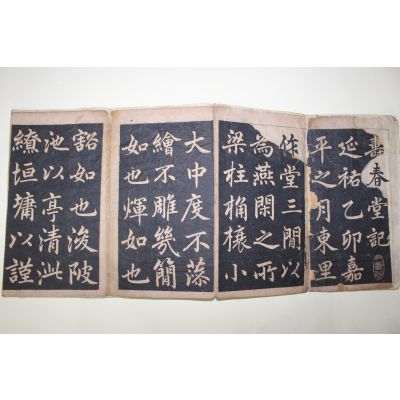 壽春堂記
延祐乙卯嘉
平之月東里
作堂三間以
為燕閑之所
梁柱桷榱小
大中度不藻
繪不雕幾簡
如也煇如也
豁如也浚陂
池以亭清泚
繚垣墉以謹